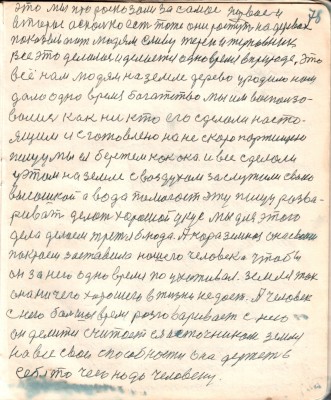 78
это мы про розказали за самое первое и
второе а сколько есть тоже они ростуть на деревах
показывают людям сливу терен и терновник
все это делалося и делается одно время в природе, это
всё нам людям на земле дерево уродило нам
дало одно время богатство мы им воспользо-
вались как ни кто его сделали насто-
ящим и сготовлено на не скоро портящию
пищу мы ей бережем как она и все сделали
у этом на земле с воздухом заслужили свою
высушкой а вода помогает эту пищу разва-
ривать делать хорошой укус мы для этого
дела делаем третье блюдо. А кора земная она своим
покроем заставила нашего человека чтобы
он за него одно время поухаживал. земля так
она ничего хорошего в жизни не дает. А человек
с нею большое время разговаривает с нею
он делится считает ея источником землю
на все свои способности она держит в
себе то чего надо человеку.